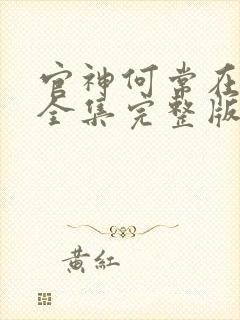 官神何常在
全集完整版
黃紅